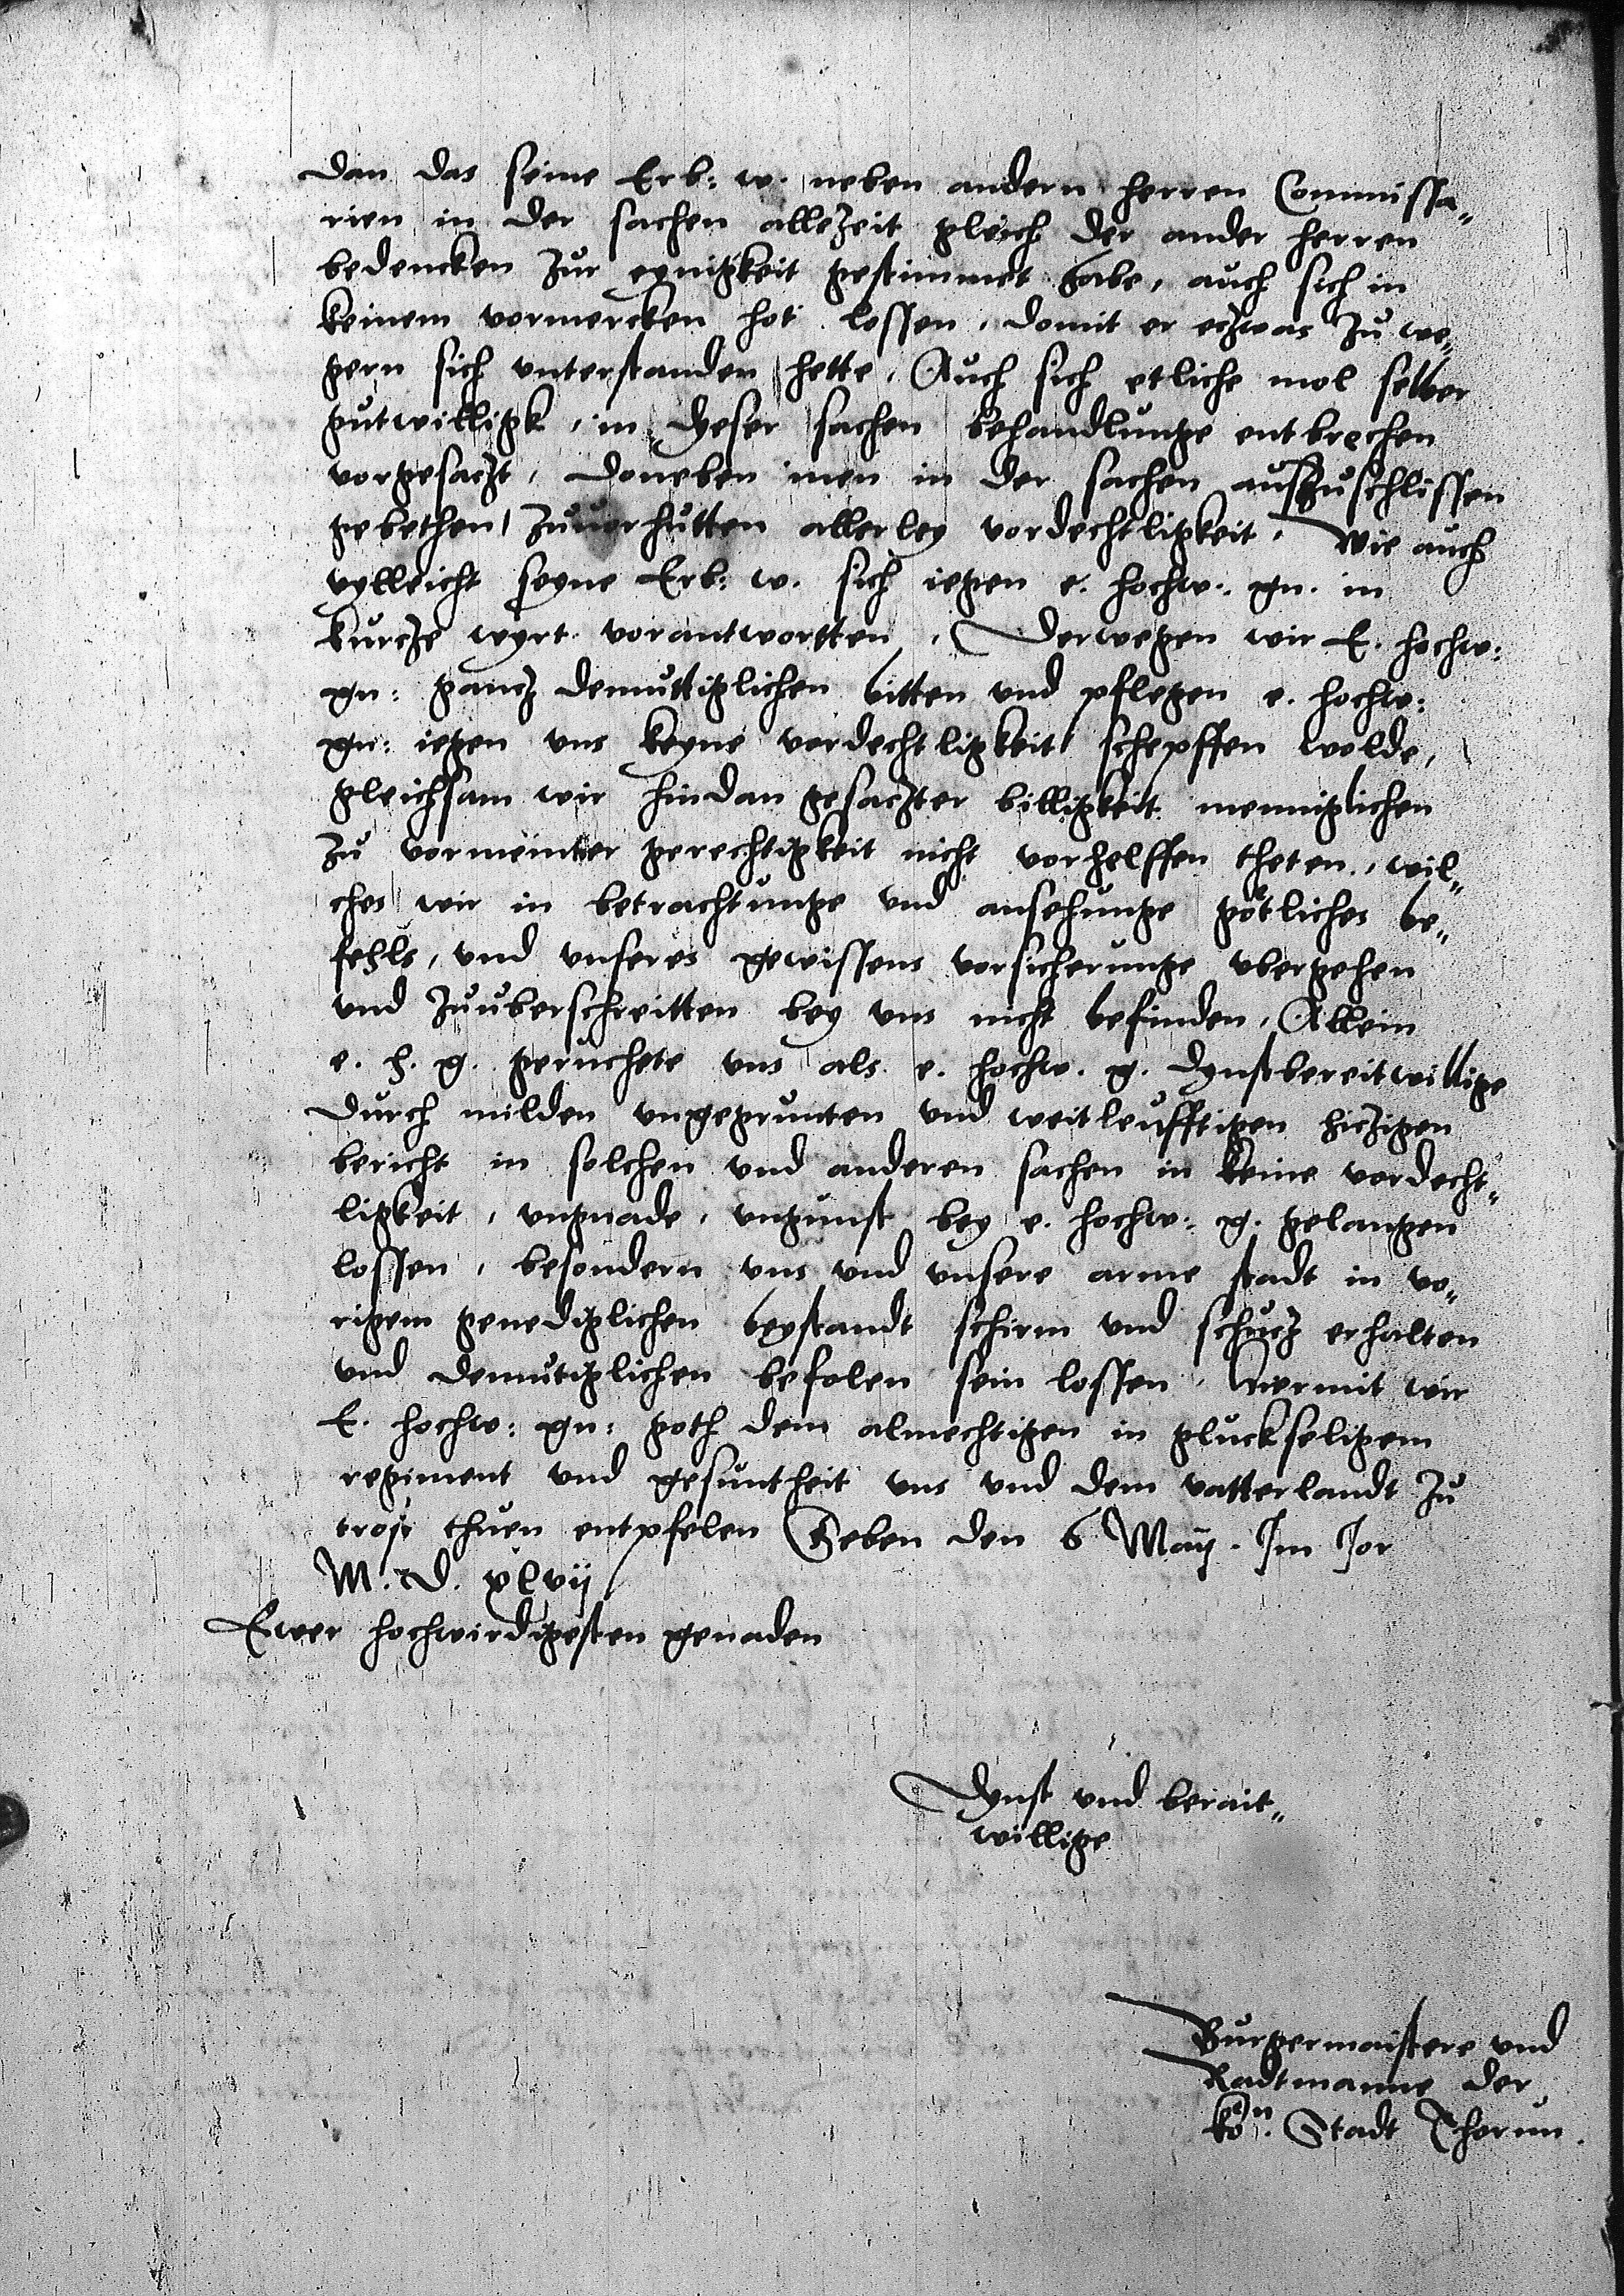 Dan das seine Erb: w. neben andern herren Commissa„
rien in der sachen allezeit gleich der ander herren
bedencken zur eynigkeit gestimmet habe, auch sich in
keinem vormercken hot lossen, domit er eczwas zu we„
gern sich unterstanden hette, Auch sich etliche mol selber
gutwilligk, in dyeser sachen behandlunge entbrechen
vorgesaczt, doneben inen in der sachen auszuschlissen
gebethen, zuuorhutten allerley vordechtligkeit, Wie auch
vylleicht seyne Erb: w. sich iegen e. hochw. gn. in
kurcze wyrt vorantwortten, Derwegen wir E. hochw:
gn: gancz demuttiglichen bitten und pflegen e. hochw:
gn: iegen uns keyne vordechtligkeit schepffen wolde,
gleichsam wir hindan gesaczter billigkeit menniglichen
zu vormeinter gerechtigkeit nicht vorhelffen theten, wil„
ches wir in betrachtunge und ansehunge gotliches be„
fehls, und unseres gewissens vorsicherunge ubergehen
und zuuberschreitten bey uns nicht befinden, Allein
e. h. g. geruchete uns als e. hochw. g. dynstbereitwillige
durch milden ungegrunten und weitleufftigen hiczigen
bericht in solchen und anderen sachen in keine vordecht„
ligkeit, ungnade, ungunst bey e. hochw: g. gelangen
lossen, besondern uns und unsere arme stadt in vo„
rigem genediglichen beystandt schirm und schucz erhalten
und demutiglichen befolen sein lossen, Hiermit wir
E. hochw: gn: goth dem almechtigen in gluckseligem
regiment und gesuntheit uns und dem vatterlandt zu
trost thuen entpfelen Geben den 6 Maij. Im Jor
M. D. xlvij
Ewer hochwirdigesten genaden
Dynst und berait„
willige
Burgermaistere und
Radtmanne der
kön. Stadt Thorun.